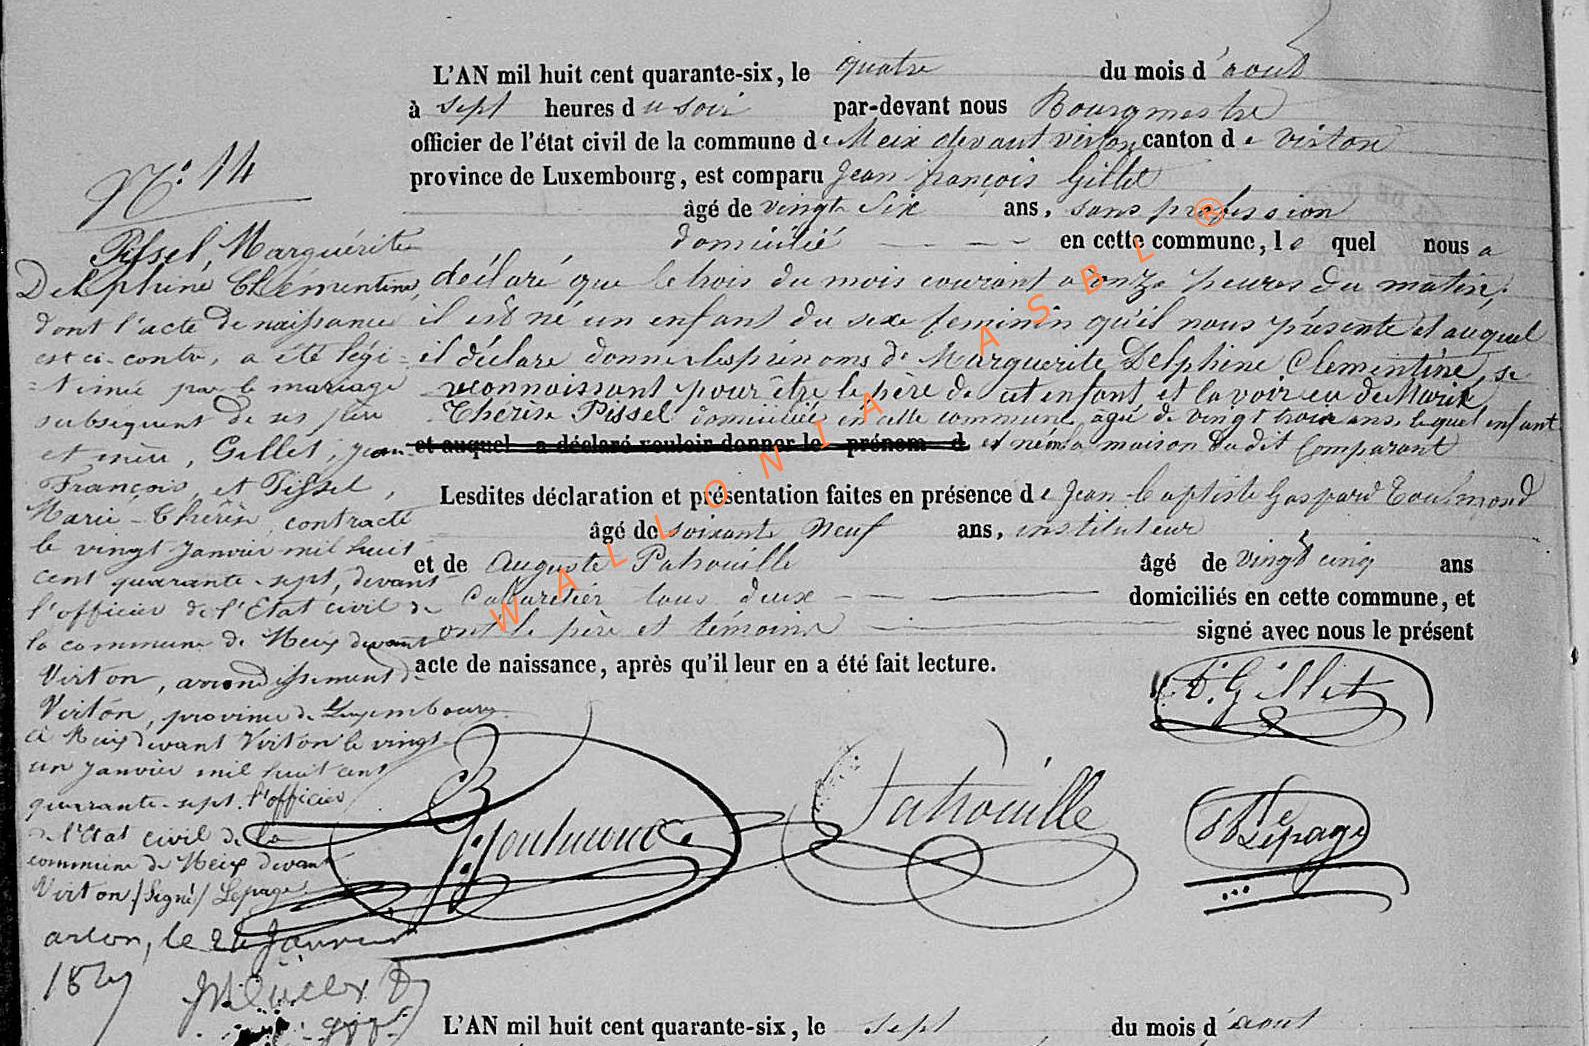 L'AN mil huit cent quarante-six, le quatre du mois d'aout
à sept heures du soir par-devant nous Bourgmestre
officier de l'état civil de la commune de Meix devant virton canton de virton
province de Luxembourg, est comparu Jean françois Gillet
âgé de vingt Six ans, sans profession
domicilié en cette commune, le quel nous a
déclaré que le trois du mois courant a onze heures du matin,
il est né un enfant du sexe feminin qu'il nous présente et auquel
il déclare donner les prénoms de Marguerite Delphine Clementine, se
reconnaissant pour être le père de cet enfant et l'avoir eu de Marie
Thérèse Pissel domiciliée en cette commune âgée de vingt trois ans, lequel enfant
et auquel a déclaré vouloir donner le prénom d est né en la maison dudit Comparant
Lesdites déclaration et présentation faites en présence de Jean-baptiste Gaspard Toulmond
âgé de soixante Neuf ans, instituteur
et de Auguste Patrouille âgé de vingt cinq ans
Cabaretier tous deux domiciliés en cette commune, et
ont le père et témoins signé avec nous le présent
acte de naissance, après qu'il leur en a été fait lecture.
N.° 14
Pissel, Marguérite
Delphine Clémentine,
dont l'acte de naissance
est ci-contre, a été légi-
-timée par le mariage
subséquent de ses père
et mère, Gillet, Jean-
François, et Pissel,
Marie-Thérèse, contracté
le vingt Janvier mil huit
cent quarante-sept, devant
l'officier de l'Etat civil de
la commune de Meix devant
Virton, arrondissement de
Virton, province de Luxembourg
à Meix devant Virton le vingt
un Janvier mil huit cent
quarante-sept. l'officier
de l'Etat civil de la
commune de Meix devant
Virton /Signé/ Lepage
arlon, le 24 Janvier
1847
F. Gillet
Toulmond
Patrouille
Lepage
WALLONIA ASBL ®
L'AN mil huit cent quarante-six, le sept du mois d'aout